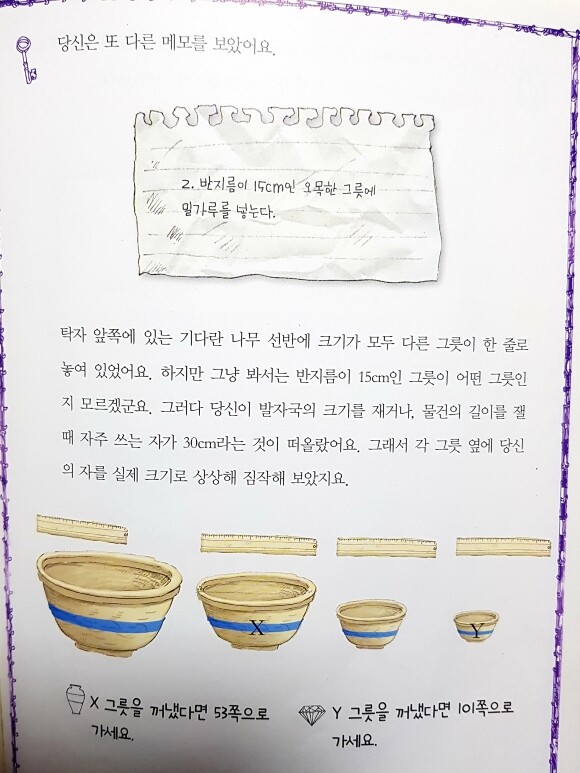 당신은 또 다른 메모를 보았어요.
2. 반지름이 15cm인 오목한 그릇에
밀가루를 넣는다.
탁자 앞쪽에 있는 기다란 나무 선반에 크기가 모두 다른 그릇이 한 줄로
놓여 있었어요. 하지만 그냥 봐서는 반지름이 15cm인 그릇이 어떤 그릇인
지 모르겠군요. 그러다 당신이 발자국의 크기를 재거나, 물건의 길이를 잴
때 자주 쓰는 자가 30cm라는 것이 떠올랐어요. 그래서 각 그릇 옆에 당신
의 자를 실제 크기로 상상해 짐작해 보았지요.
X
Y
X 그릇을 꺼냈다면 53쪽으로
가세요.
Y 그릇을 꺼냈다면 101쪽으로
가세요.